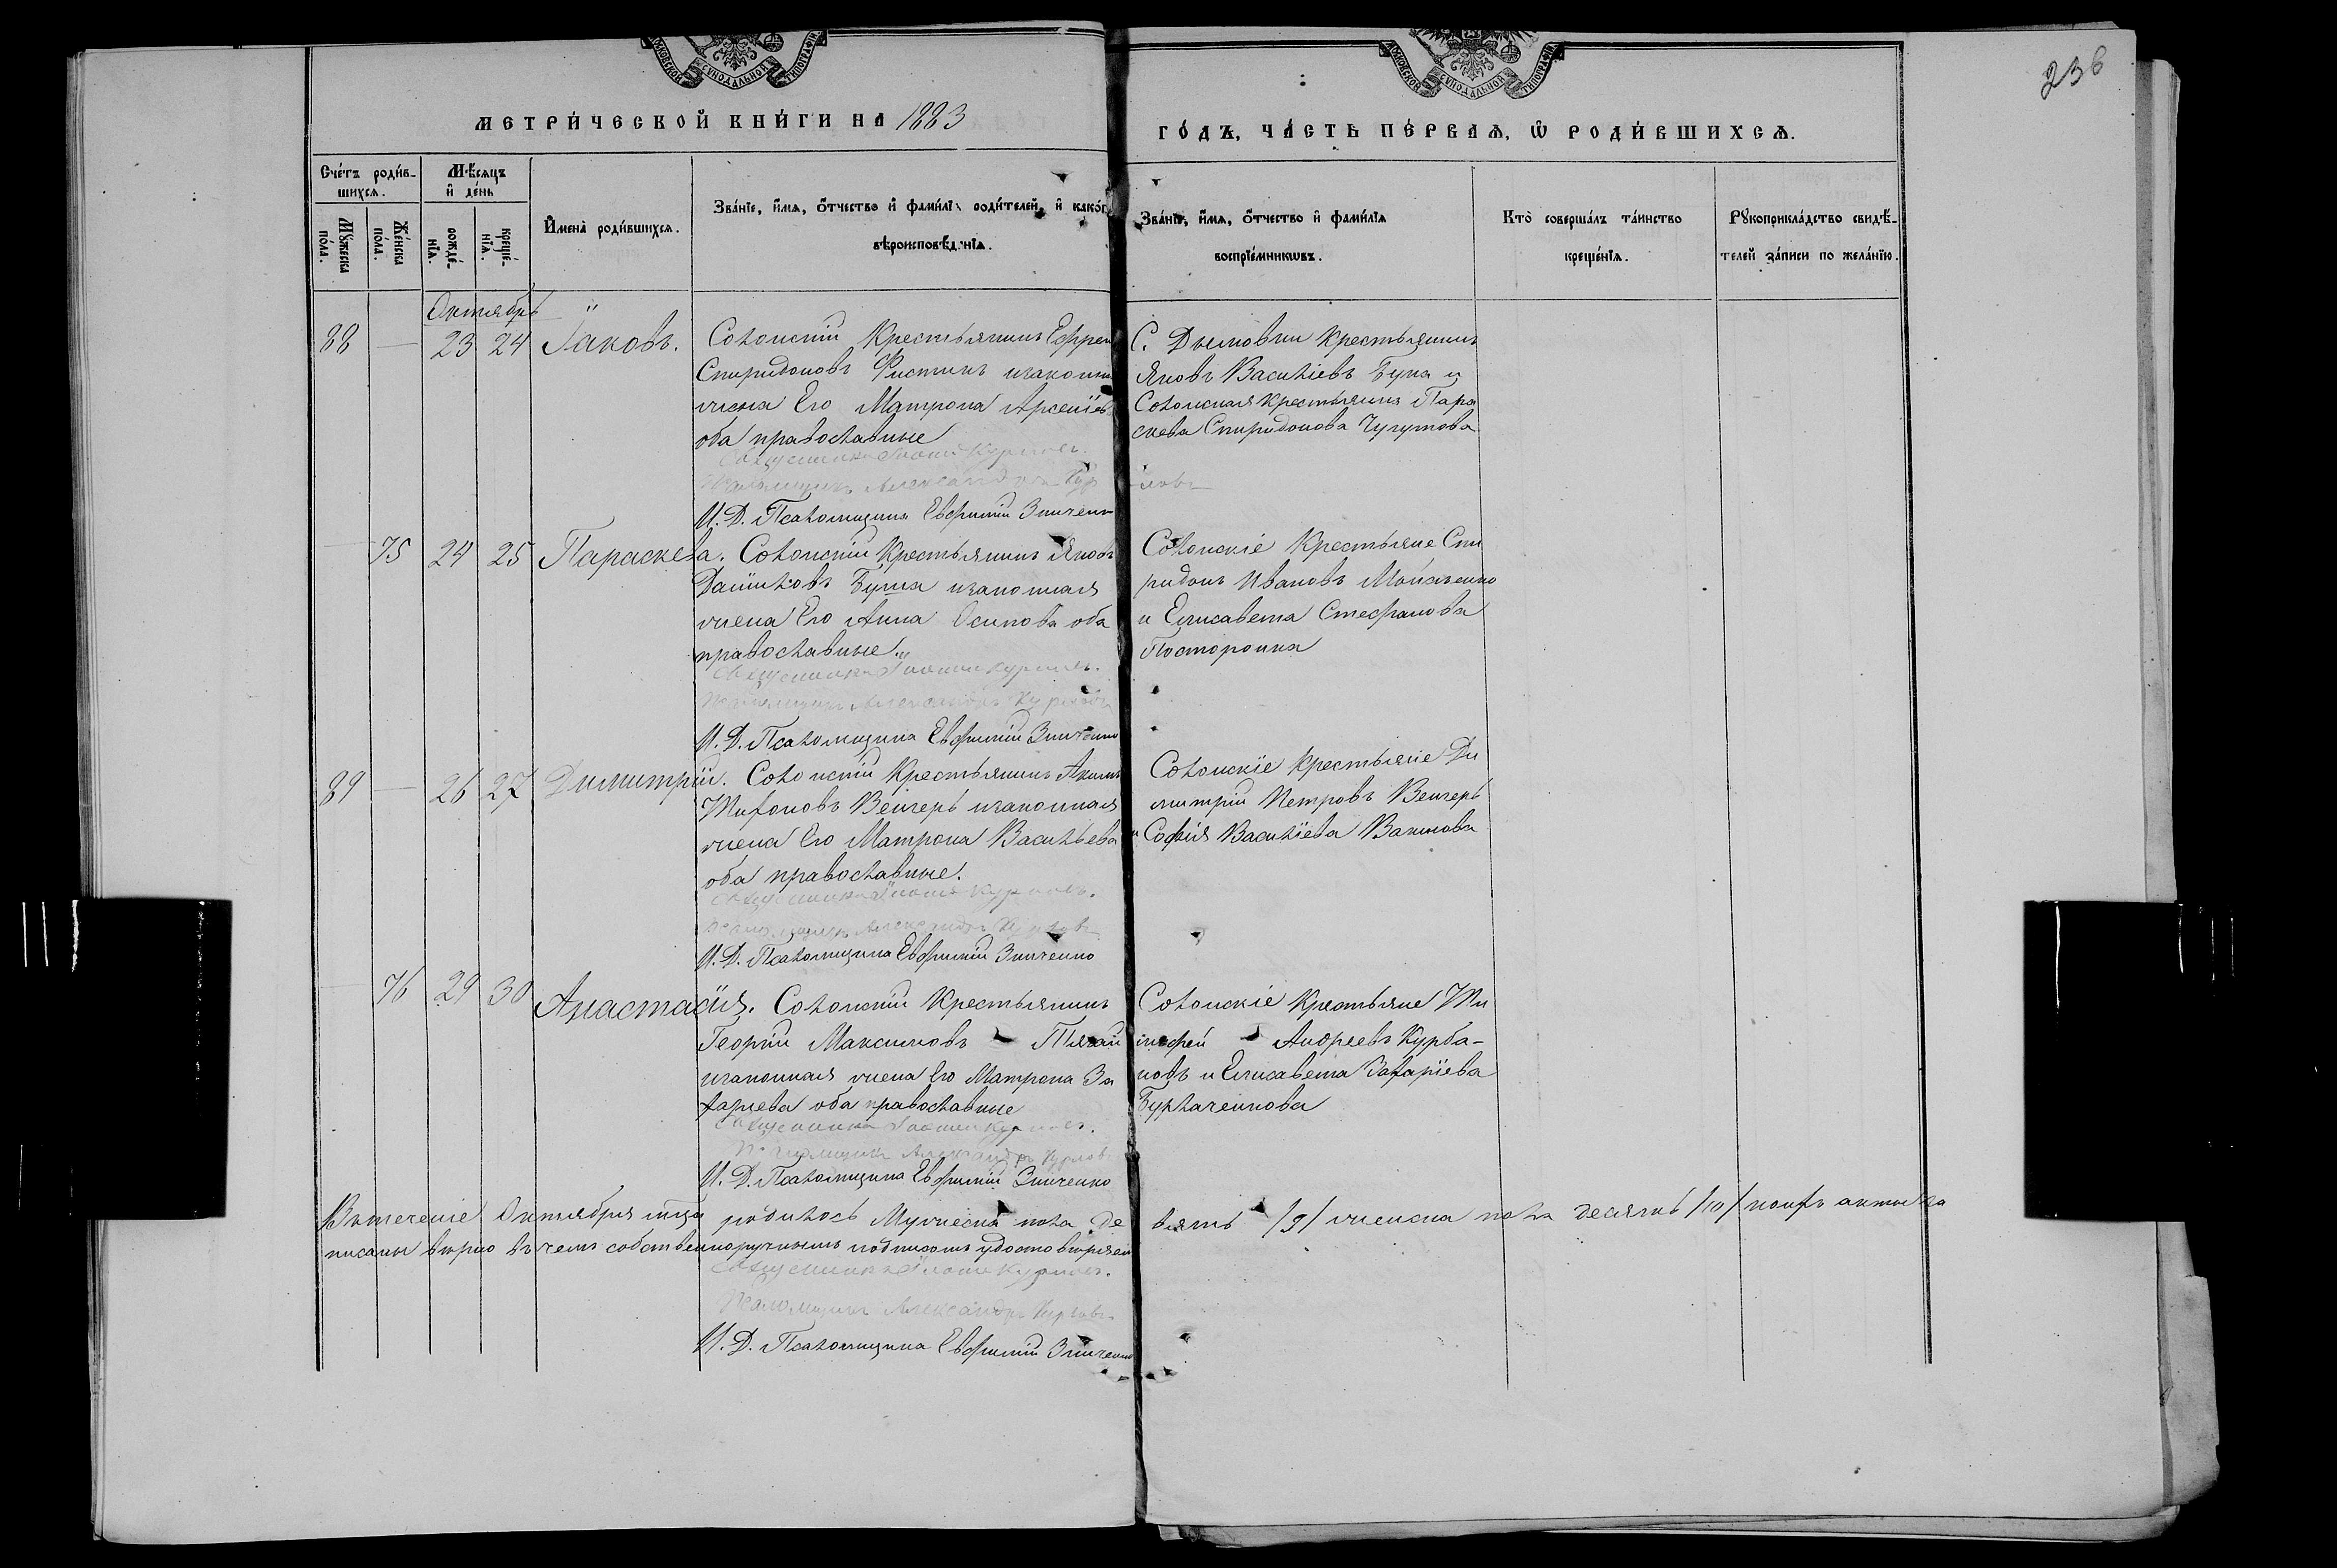 МОСКОВСКОЙ СѴНОДАЛЬНОЙ ТИПОГРАФІИ
МОСКОВСКОЙ СѴНОДАЛЬНОЙ ТИПОГРАФІИ
236
МЕТРИ́ЧЕСКОЙ КНИ́ГИ НА 1883
ГО́ДЪ, ЧА́СТЬ ПЕ́РВАѦ, Ѡ҆ РОДИ́ВШИХСѦ.
Сче́тъ роди́в-
шихсѧ.
Мѣ́сѧцъ
и҆ де́нь
Мꙋ́жеска
по́ла.
Же́нска
по́ла.
рожде́-
нїѧ.
креще́-
нїѧ.
И҆мена̀ роди́вшихсѧ.
Зва́нїе, и҆́мѧ, ѻ҆́тчество и҆ фамѝлїѧ роди́телей, и҆ како́гѡ
вѣроисповѣ́данїѧ.
Зва́нїе, и҆́мѧ, ѻ҆́тчество и҆ фами́лїѧ
воспрїе́мникѡвъ.
Кто̀ соверша́лъ та́инство
креще́нїѧ.
Рꙋкоприкла́дство свидѣ́-
телей за́писи по жела́нїю.
Октябрь
88 — 23 24 Іаковъ. Солонскій Крестьянинъ Ефрем
Спиридоновъ Фистикъ изаконн
жена Его Матрона Арсеніев
оба православные
Священникъ Іоаннъ Курилов.
Псаломщикъ Александръ Кур
И. Д. Псаломщика Евфимій Зинченк
С. Дымовки Крестьянинъ
Яковъ Василіевъ Бука и
Солонская крестьянка Пара
скева Спиридонова Чугутова
— 75 24 25 Параскева. Солонскій Крестьянинъ Яковъ
Даніиловъ Буша изаконная
жена Его Анна Осипова оба
православные.
Священникъ Іоаннъ Курилов.
Псаломщикъ Александръ Курлов
И. Д. Псаломщика Евфимій Зинченко
Солонскіе Крестьяне Спи
ридонъ Ивановъ
и Елисавета Стефанова
Посторонка
89 — 26 27 Димитрій. Солонскій Крестьянинъ Акимъ
Тихоновъ Венгеръ изаконная
жена Его Матрона Васильева
оба православные.
Священникъ Іоаннъ Курилов.
Псаломщикъ Александръ Курловъ
И. Д. Псаломщика Евфимій Зинченко
Солонскіе крестьяне Ди
митрій Петровъ Венгеръ
и Софія Василіева Вакшова
— 76 29 30 Анастасія. Солонскій Крестьянинъ
Георгій Максимовъ
изаконная жена Его Матрона За
харіева оба православные
Священникъ Іоаннъ Курилов.
Псаломщикъ Александръ Курлов
И. Д. Псаломщика Евфимій Зинченко
Солонскіе Крестьяне Ти
мофей Андреевъ Курба-
новъ и Елисавета Захаріева
Бурлаченкова
Втеченіе Октября мца родилось Мужеска пола де
вять /9/ женска пола десять /10/
писаны вѣрно въ чемъ собственноручнымъ подписомъ удостовѣряем
Священникъ Іоаннъ Курилов.
Псаломщикъ Александръ Курловъ
И. Д. Псаломщика Евфимій Зинченко